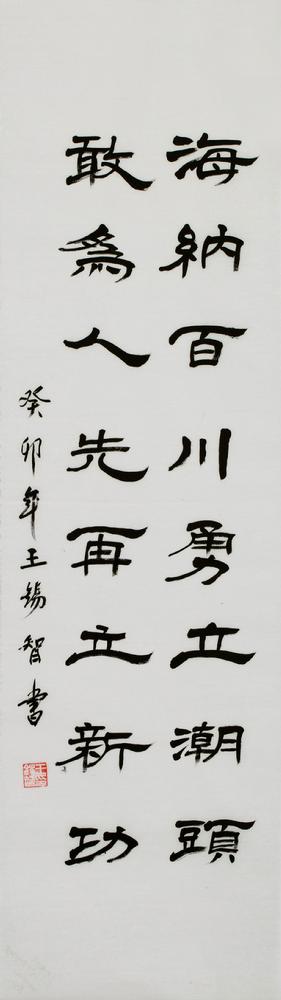 海納百川勇立潮頭
敢為人先再立新功
癸卯年王錫智書